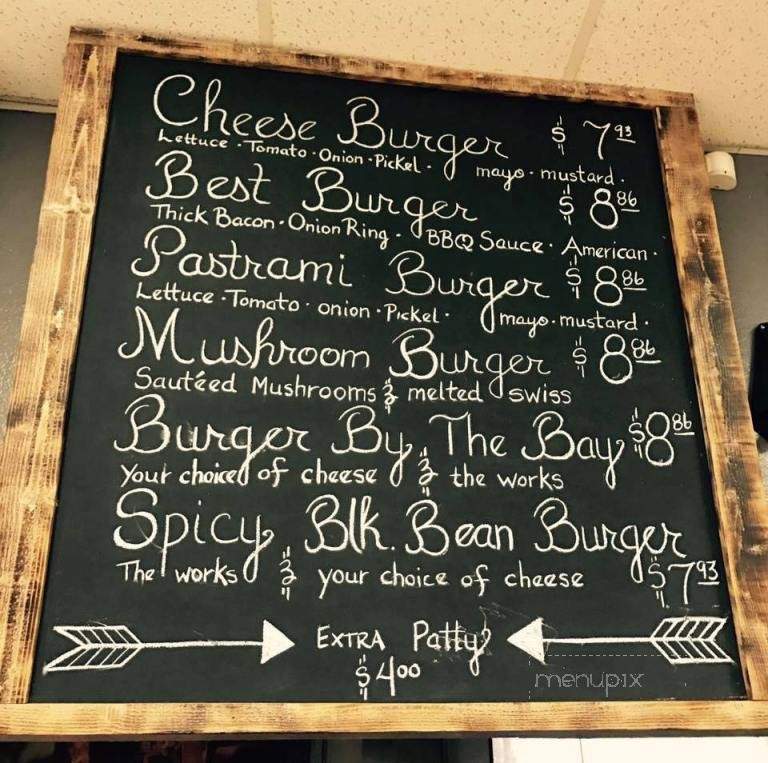 Cheese Burger $7.93
Lettuce · Tomato · Onion · Pickel · mayo · mustard ·
Best Burger $8.86
Thick Bacon · Onion Ring · BBQ Sauce · American ·
Pastrami Burger $8.86
Lettuce · Tomato · onion · Pickel · mayo · mustard ·
Mushroom Burger $8.86
Sautéed Mushrooms & melted swiss
Burger By The Bay $8.86
Your choice of cheese & the works
Spicy Blk. Bean Burger
The works & your choice of cheese $7.93
EXTRA Patty
$4.00
menupix